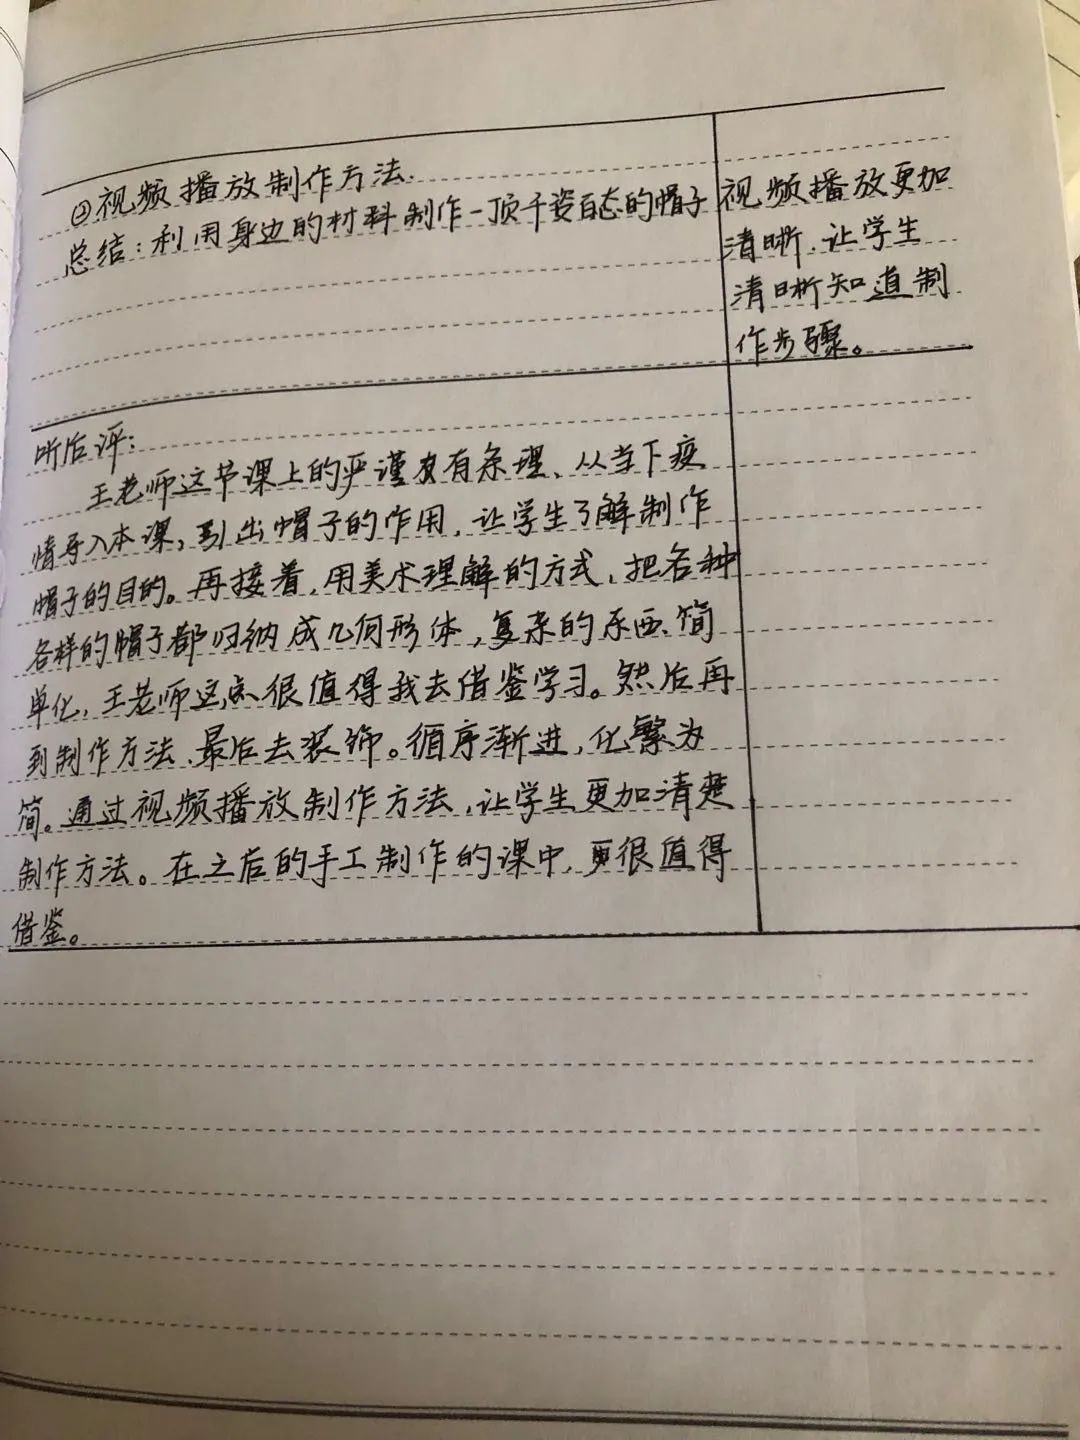 ②视频播放制作方法.
总结:利用身边的材料制作一顶千姿百态的帽子
视频播放更加
清晰,让学生
清晰知道制
作步骤。
听后评:
王老师这节课上的严谨有条理、从当下疫
情导入本课,引出帽子的作用,让学生了解制作
帽子的目的。再接着,用美术理解的方式,把各种
各样的帽子都归纳成几何形体,复杂的东西、简
单化,王老师这点很值得我去借鉴学习。然后再
到制作方法、最后去装饰。循序渐进,化繁为
简。通过视频播放制作方法,让学生更加清楚
制作方法。在之后的手工制作的课中,更很值得
借鉴。